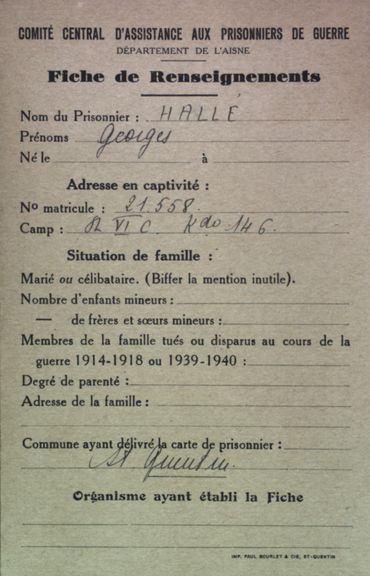 COMITÉ CENTRAL D'ASSISTANCE AUX PRISONNIERS DE GUERRE
DÉPARTEMENT DE L'AISNE
Fiche de Renseignements
Nom du Prisonnier : HALLÉ
Prénoms Georges
Né le à
Adresse en captivité :
No matricule : 21.558.
Camp : VI C. Kdo 146.
Situation de famille :
Marié ou célibataire. (Biffer la mention inutile).
Nombre d'enfants mineurs :
— de frères et sœurs mineurs :
Membres de la famille tués ou disparus au cours de la
guerre 1914-1918 ou 1939-1940 :
Degré de parenté :
Adresse de la famille :
Commune ayant délivré la carte de prisonnier :
St Quentin.
Organisme ayant établi la Fiche
IMP. PAUL BOURLET & CIE, ST-QUENTIN